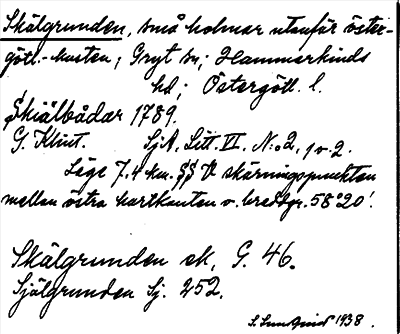 Skälgrunden, små holmar utanför öster-
götl.-kusten; Gryt sn; Hammarkinds
hd; Östergötl. l.
Skiälbådar 1789.
G. Klint. SjA, Litt. VI. N:o 2, 1 o. 2.
Läge 7.4 km. SSV skärningspunkten
mellan östra kartkanten o. breddgr. 58°20'.
Skälgrunden ek. G. 46.
Själgrunden Sj. 252.
S. Lundqvist 1938.